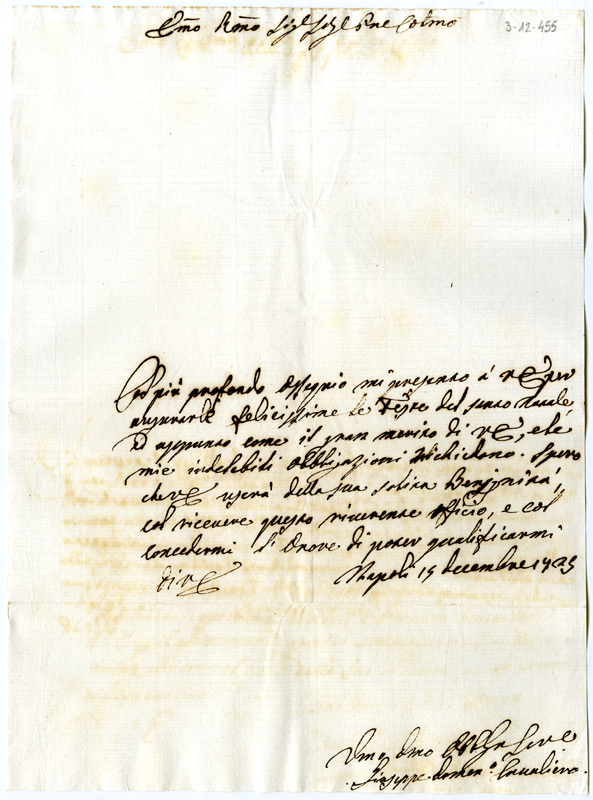 Emo Rmo Sig.r Sig.r Pne Colmo
3-12-455
Col più profondo ossequio mi presento à V.E. per
augurarle felicissime le Feste del santo Natale
appunto come il gran merito di V.E., e le
mie indelebili obbligazioni richiedono. Spero
che V.E. userà della sua solita Benignità,
col ricevere questo riverente officio, e col
concedermi l'onore di poter qualificarmi
di V.E.
Napoli 15 decembre 1725
Umo Dmo Serve
Giuseppe Domen.o